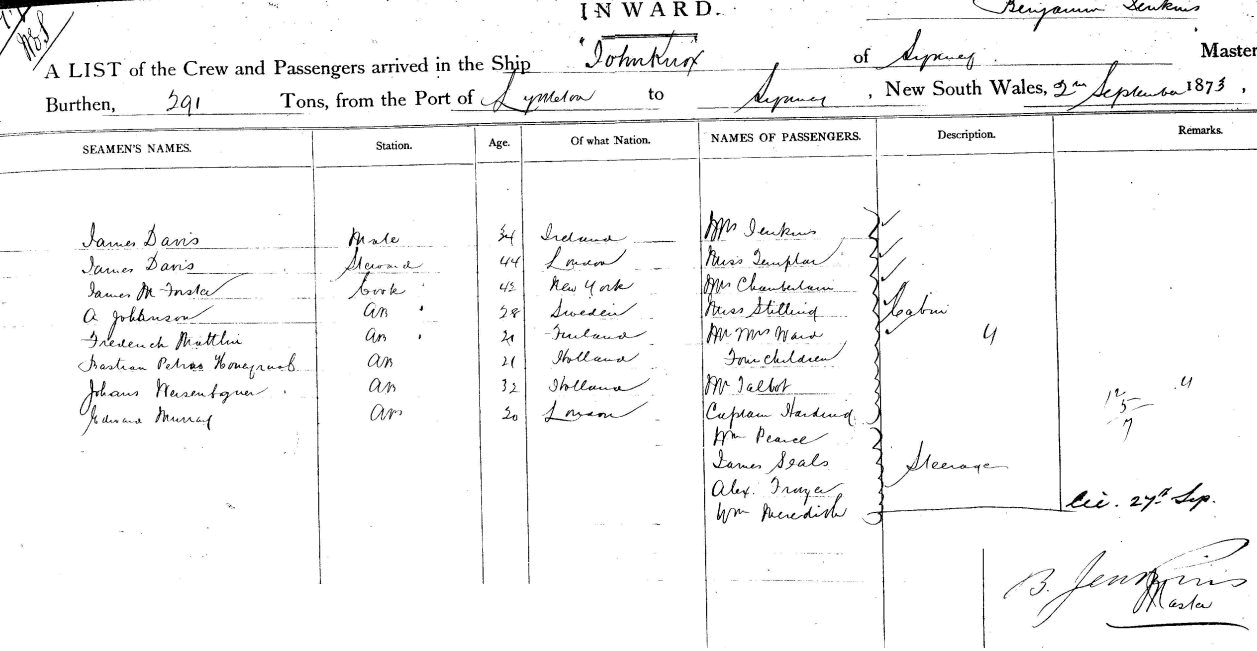 INWARD.
Benjamin Jenkins
A LIST of the Crew and Passengers arrived in the Ship "John Knox of Sydney Master
Burthen, 291 Tons, from the Port of Lyttleton to Sydney, New South Wales, 2nd September 1873,
SEAMEN'S NAMES. Station. Age. Of what Nation. NAMES OF PASSENGERS. Description. Remarks.
James Davis Mate 34 Ireland Mrs Jenkins
James Davis Steward 44 London Miss Templar
James Cook 42 New York Mrs Chamberlain
A Johhnson AB 28 Sweden Miss Stilling Cabin
Frederick AB 21 Finland Mr Mrs Ward 4
Bastian Petrus AB 21 Holland Four Children
Johans AB 32 Holland Mr Talbot 4
Edward Murray AB 20 London Captain Harding
12
5
7
Wm Pearce
James Seals Steerage
Alex.
Wm Meredith 27th Sep.
B. Jenkins
Master